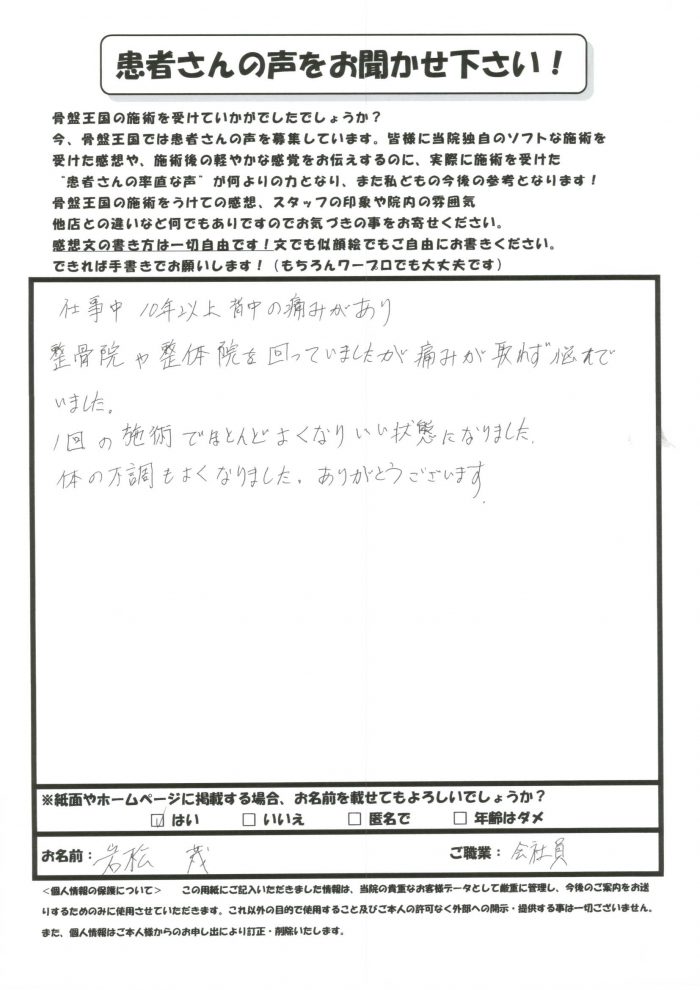 患者さんの声をお聞かせ下さい!
骨盤王国の施術を受けていかがでしたでしょうか?
今、骨盤王国では患者さんの声を募集しています。皆様に当院独自のソフトな施術を
受けた感想や、施術後の軽やかな感覚をお伝えするのに、実際に施術を受けた
"患者さんの率直な声"が何よりの力となり、また私どもの今後の参考となります!
骨盤王国の施術をうけての感想、スタッフの印象や院内の雰囲気
他店との違いなど何でもありですのでお気づきの事をお寄せください。
感想文の書き方は一切自由です!文でも似顔絵でもご自由にお書きください。
できれば手書きでお願いします!(もちろんワープロでも大丈夫です)
仕事中 10年以上 背中の痛みがあり
整骨院や整体院を回っていましたが痛みが取れず悩んで
いました。
1回の施術でほとんどよくなりいい状態になりました。
体の万調もよくなりました。ありがとうございます。
※紙面やホームページに掲載する場合、お名前を載せてもよろしいでしょうか?
☑ はい □ いいえ □ 匿名で □ 年齢はダメ
お名前:岩松 茂 ご職業:会社員
<個人情報の保護について> この用紙にご記入いただきました情報は、当院の貴重なお客様データとして厳重に管理し、今後のご案内をお送
りするためのみに使用させていただきます。これ以外の目的で使用すること及びご本人の許可なく外部への開示・提供する事は一切ございません。
また、個人情報はご本人様からのお申し出により訂正・削除いたします。